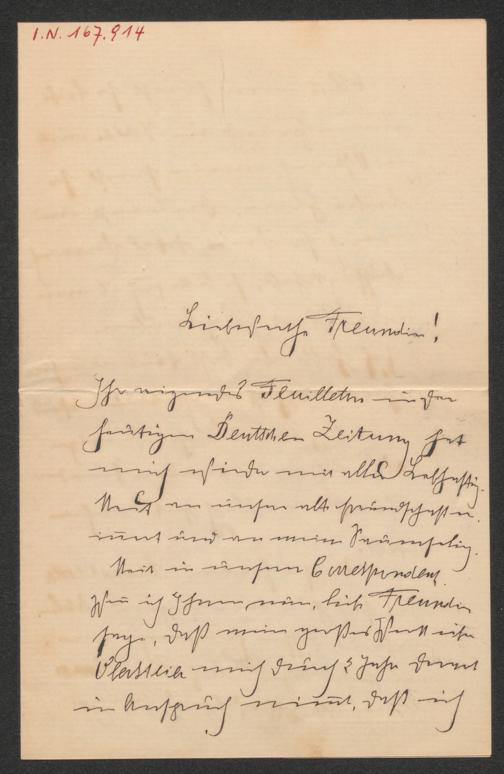 I.N. 167.914
Liebwerthe Freundin!
Ihr reizendes Feuilleton in der
heutigen Deutschen Zeitung hat
mich wieder mit aller Lebhaftig-
keit an unsere alte freundschaft er-
innert und an meine Saumselig-
keit in unserer Correspondenz.
Wenn ich Ihnen nun, liebe Freundin
sage, daß mein großes Werk über
mich durch 2 Jahre derart
in Anspruch nimmt, daß ich